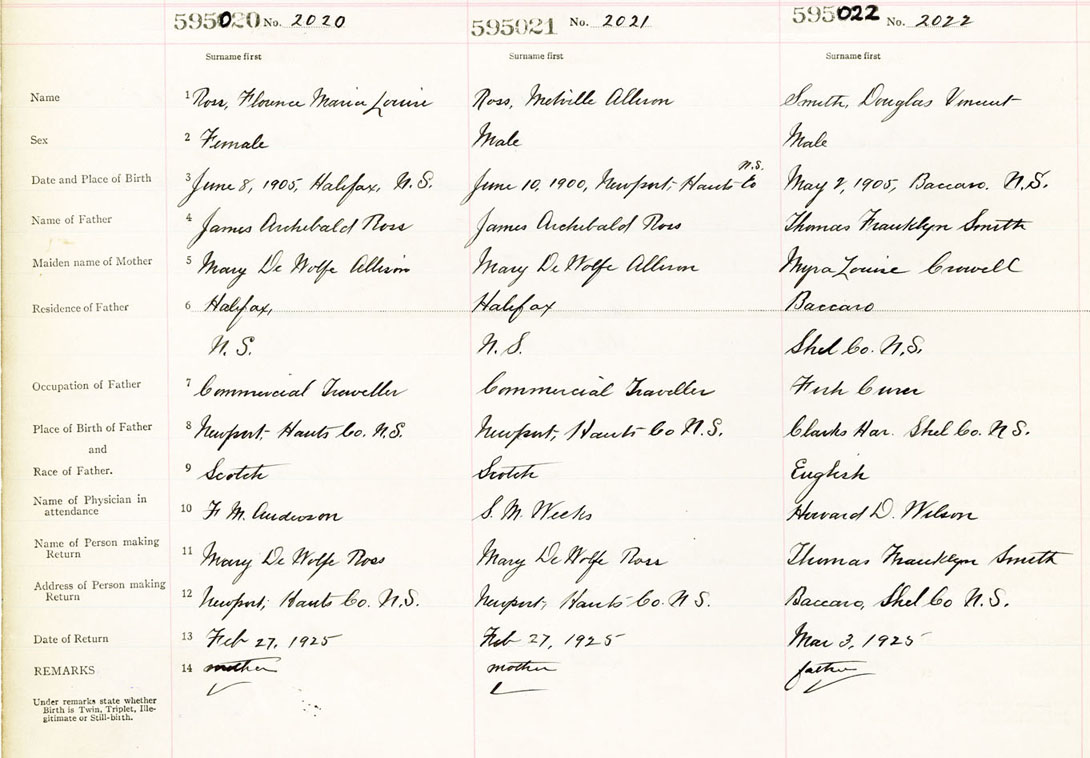 595020 No. 2020 595021 No. 2021 595022 No. 2022
Surname first Surname first Surname first
Name 1 Ross, Florence Maria Louise Ross, Melville Allison Smith, Douglas Vincent
Sex 2 Female Male Male
N.S.
Date and Place of Birth 3 June 8, 1905, Halifax, N.S. June 10, 1900, Newport, Hants Co May 2, 1905, Baccaro. N.S.
Name of Father 4 James Archibald Ross James Archibald Ross Thomas Francklyn Smith
Maiden name of Mother 5 Mary De Wolfe Allison Mary De Wolfe Allison Myra Louise Crowell
Residence of Father 6 Halifax, Halifax Baccaro
N.S. N.S. Shel Co. N.S.
Occupation of Father 7 Commercial Traveller Commercial Traveller Fish Curer
Place of Birth of Father 8 Newport, Hants Co. N.S. Newport, Hants Co N.S. Clarks Har. Shel Co. N.S.
and
Race of Father. 9 Scotch Scotch English
Name of Physician in
attendance 10 F M. Anderson S. M. Weeks Howard D. Wilson
Name of Person making
Return 11 Mary De Wolfe Ross Mary De Wolfe Ross Thomas Francklyn Smith
Address of Person making
Return 12 Newport, Hants Co. N.S. Newport, Hants Co. N.S. Baccaro, Shel Co N.S.
Date of Return 13 Feb 27, 1925 Feb 27, 1925 Mar 3, 1925
REMARKS 14 mother mother father
Under remarks state whether
Birth is Twin, Triplet, Ille-
gitimate or Still-birth.